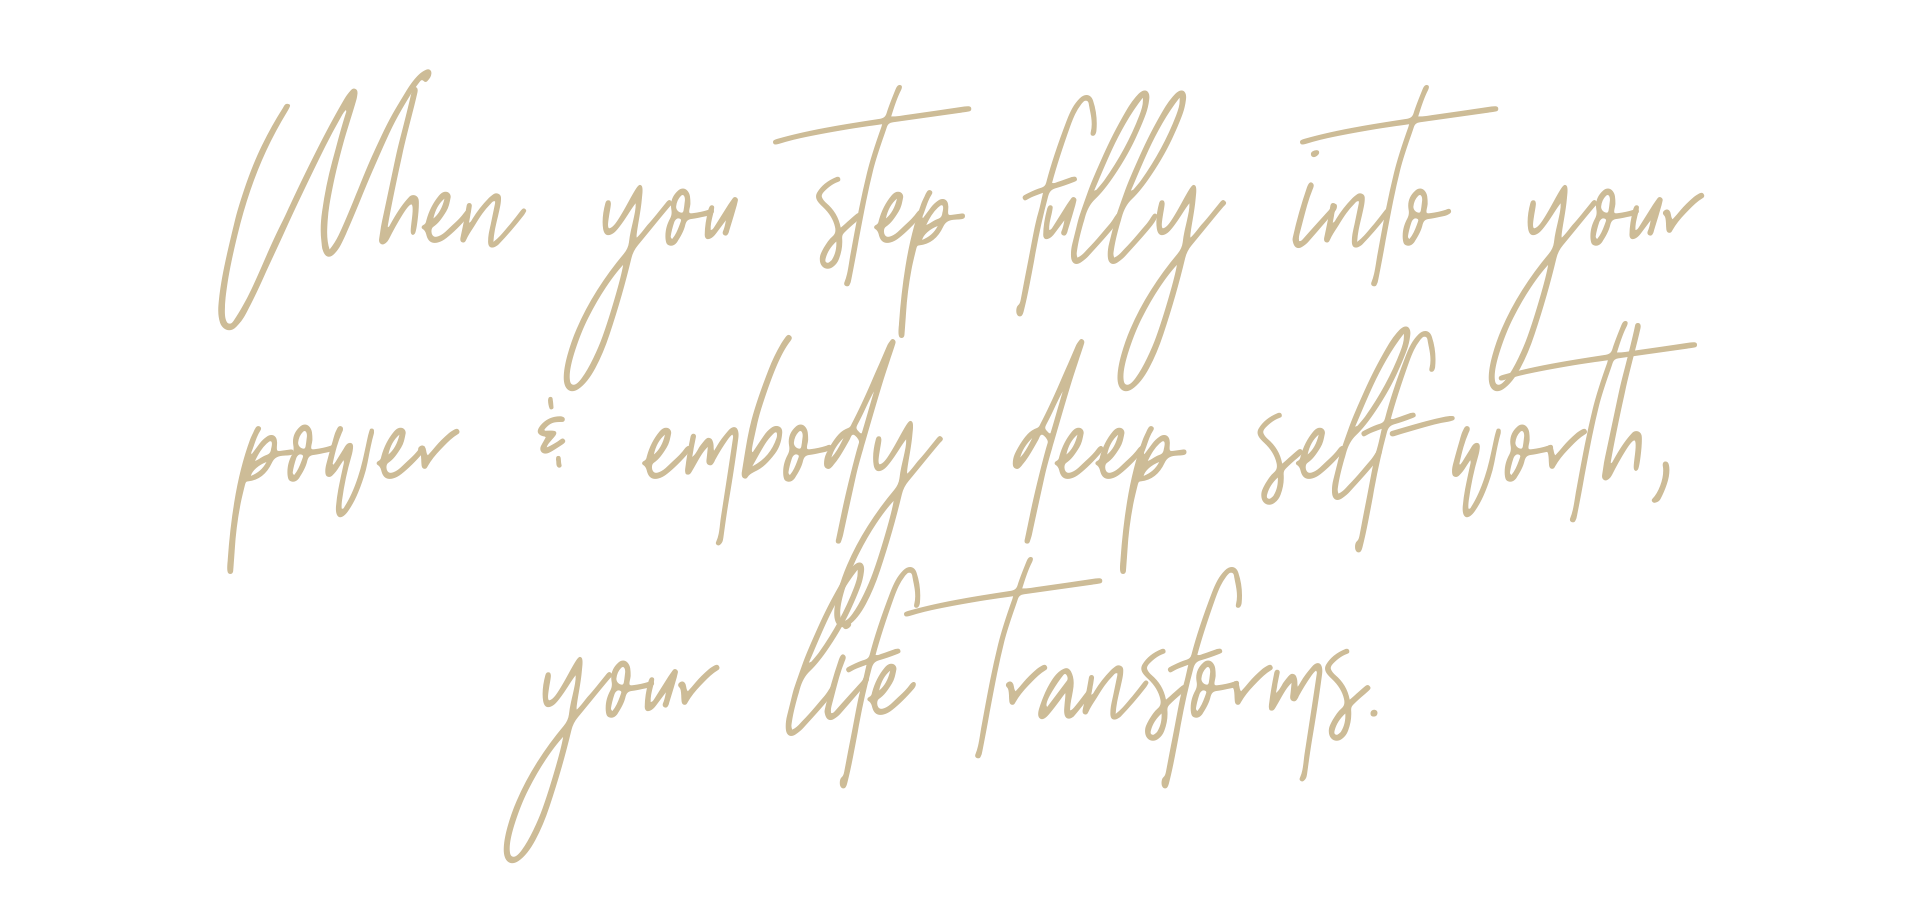 When you step fully into your
power & embody deep self-worth,
your life transforms.